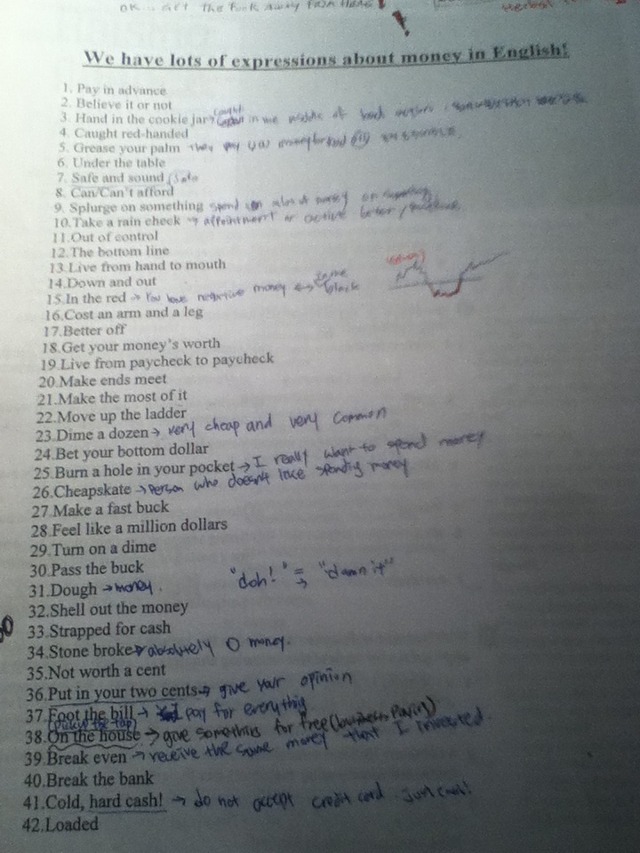 OK... GET THE FUCK AWAY FROM HERE!
Herbal
We have lots of expressions about money in English!
1. Pay in advance
2. Believe it or not
3. Hand in the cookie jar → caught in the middle of
4. Caught red-handed
5. Grease your palm → they pay you money
6. Under the table
7. Safe and sound / safe
8. Can/Can't afford
9. Splurge on something spend a lot of money on something
10. Take a rain check → appointment or
11. Out of control
12. The bottom line
13. Live from hand to mouth
14. Down and out
15. In the red → You have negative money ↔ in the black
16. Cost an arm and a leg
17. Better off
18. Get your money's worth
19. Live from paycheck to paycheck
20. Make ends meet
21. Make the most of it
22. Move up the ladder
23. Dime a dozen → very cheap and very common
24. Bet your bottom dollar
25. Burn a hole in your pocket → I really want to spend money
26. Cheapskate → person who doesn't like spending money
27. Make a fast buck
28. Feel like a million dollars
29. Turn on a dime
30. Pass the buck
31. Dough → money. "doh!" = "damn it"
32. Shell out the money
33. Strapped for cash
34. Stone broke → absolutely 0 money.
35. Not worth a cent
36. Put in your two cents → give your opinion
37. Foot the bill → pay for everything
(pick up the tap)
38. On the house → give something for free (business paying)
39. Break even → receive the same money that I invested.
40. Break the bank
41. Cold, hard cash! → do not accept credit card. Just cash!
42. Loaded